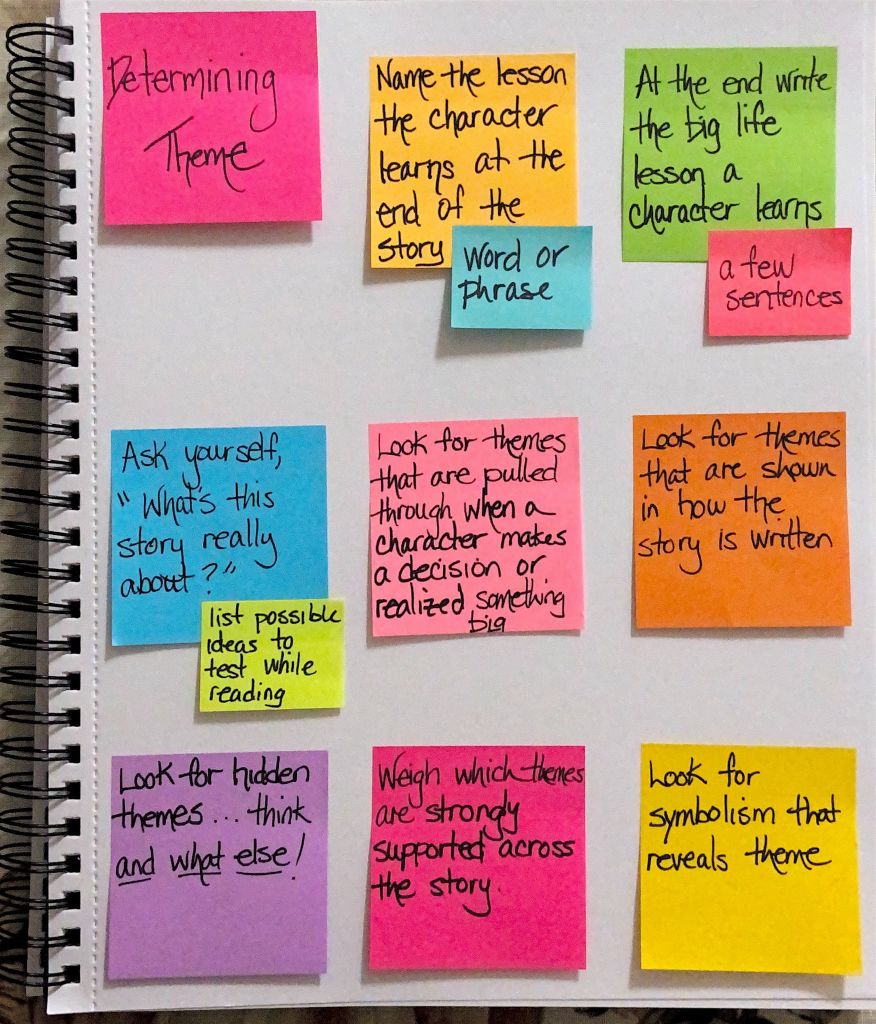 Determining
Theme
Name the lesson
the character
learns at the
end of the
story
word or
phrase
At the end write
the big life
lesson a
character learns
a few
sentences
Ask yourself,
"What's this
story really
about?"
list possible
ideas to
test while
reading
Look for themes
that are pulled
through when a
character makes
a decision or
realized something
big
Look for themes
that are shown
in how the
story is written
Look for hidden
themes... think
and what else!
Weigh which themes
are strongly
supported across
the story.
Look for
symbolism that
reveals theme